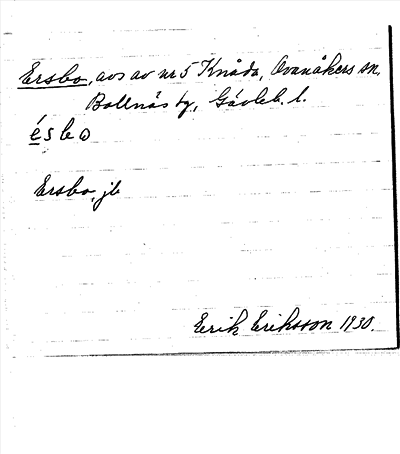 Ersbo, avs av nr 5 Knåda, Ovanåkers sn,
Bollnäs tg, Gävleb. l.
éslo
Ersbo, jb
Erik Eriksson 1930.